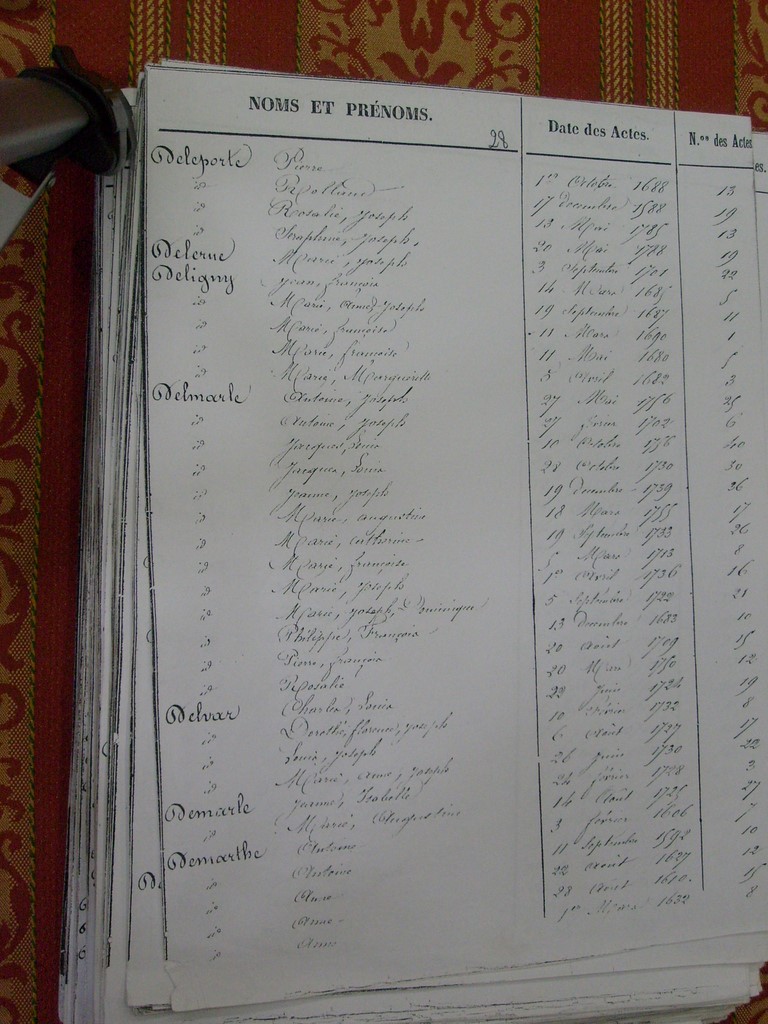 NOMS ET PRÉNOMS. 28 Date des Actes. N.os des Actes
Deleporte Pierre 1er Octobre 1688 13
id Rolline 17 Decembre 1588 19
id Rosalie, Joseph 13 Mai 1785 13
id Seraphine, Joseph, 20 Mai 1788 19
Delerue Marie, Joseph 3 Septembre 1701 22
Deligny Jean, françois 14 Mars 1685 5
id Marie, Anne, Josephe 19 Septembre 1687 11
id Marie, françoise 11 Mars 1690 1
id Marie, françoise 11 Mai 1680 5
id Marie, Marguerite 5 Avril 1682 3
Delmarle Antoine, Joseph 27 Mai 1756 25
id Antoine, Joseph 27 fevrier 1702 6
id Jacques, Louis 10 Octobre 1756 40
id Jacques, Louis 28 Octobre 1730 30
id Jeanne, Joseph 19 Decembre 1739 36
id Marie, augustine 18 Mars 1755 17
id Marie, catherine 19 Septembre 1733 26
id Marie, françoise 5 Mars 1713 8
id Marie, Joseph 1er Avril 1736 16
id Marie, Joseph, Dominique 5 Septembre 1722 21
id Philippe, François 13 Decembre 1683 10
id Pierre, françois 20 Août 1709 15
id Rosalie 20 Mars 1750 12
Delvar Charles, Louis 22 Juin 1724 19
id Dorothé, florence, Joseph 10 fevrier 1732 8
id Louis, Joseph 6 Août 1727 17
id Marie, anne, Joseph 26 Juin 1730 22
Demarle Jeanne, Isabelle 24 fevrier 1728 3
id Marie, Augustine 14 Août 1725 27
Demarthe Antoine 3 fevrier 1606 7
id Antoine 11 Septembre 1592 10
id Anne 22 Août 1627 12
id Anne 28 Août 1610 15
id Anne 1er Mars 1632 8